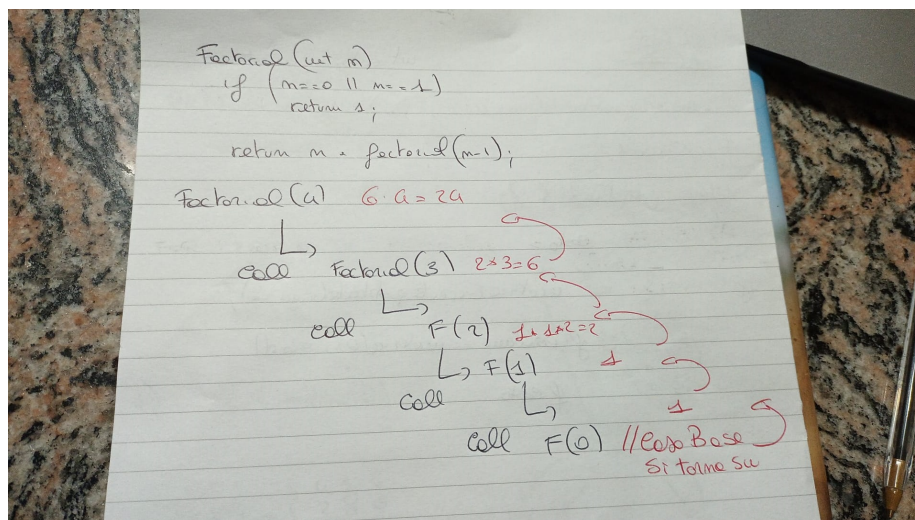 Factorial (int n)
if (n==0 || n==1)
return 1;
return n * factorial(n-1);
Factorial (4) 6·4=24
call Factorial (3) 2*3=6
call F(2) 1*1*2=2
F(1) 1
call
1
call F(0) //Caso Base
Si torna su